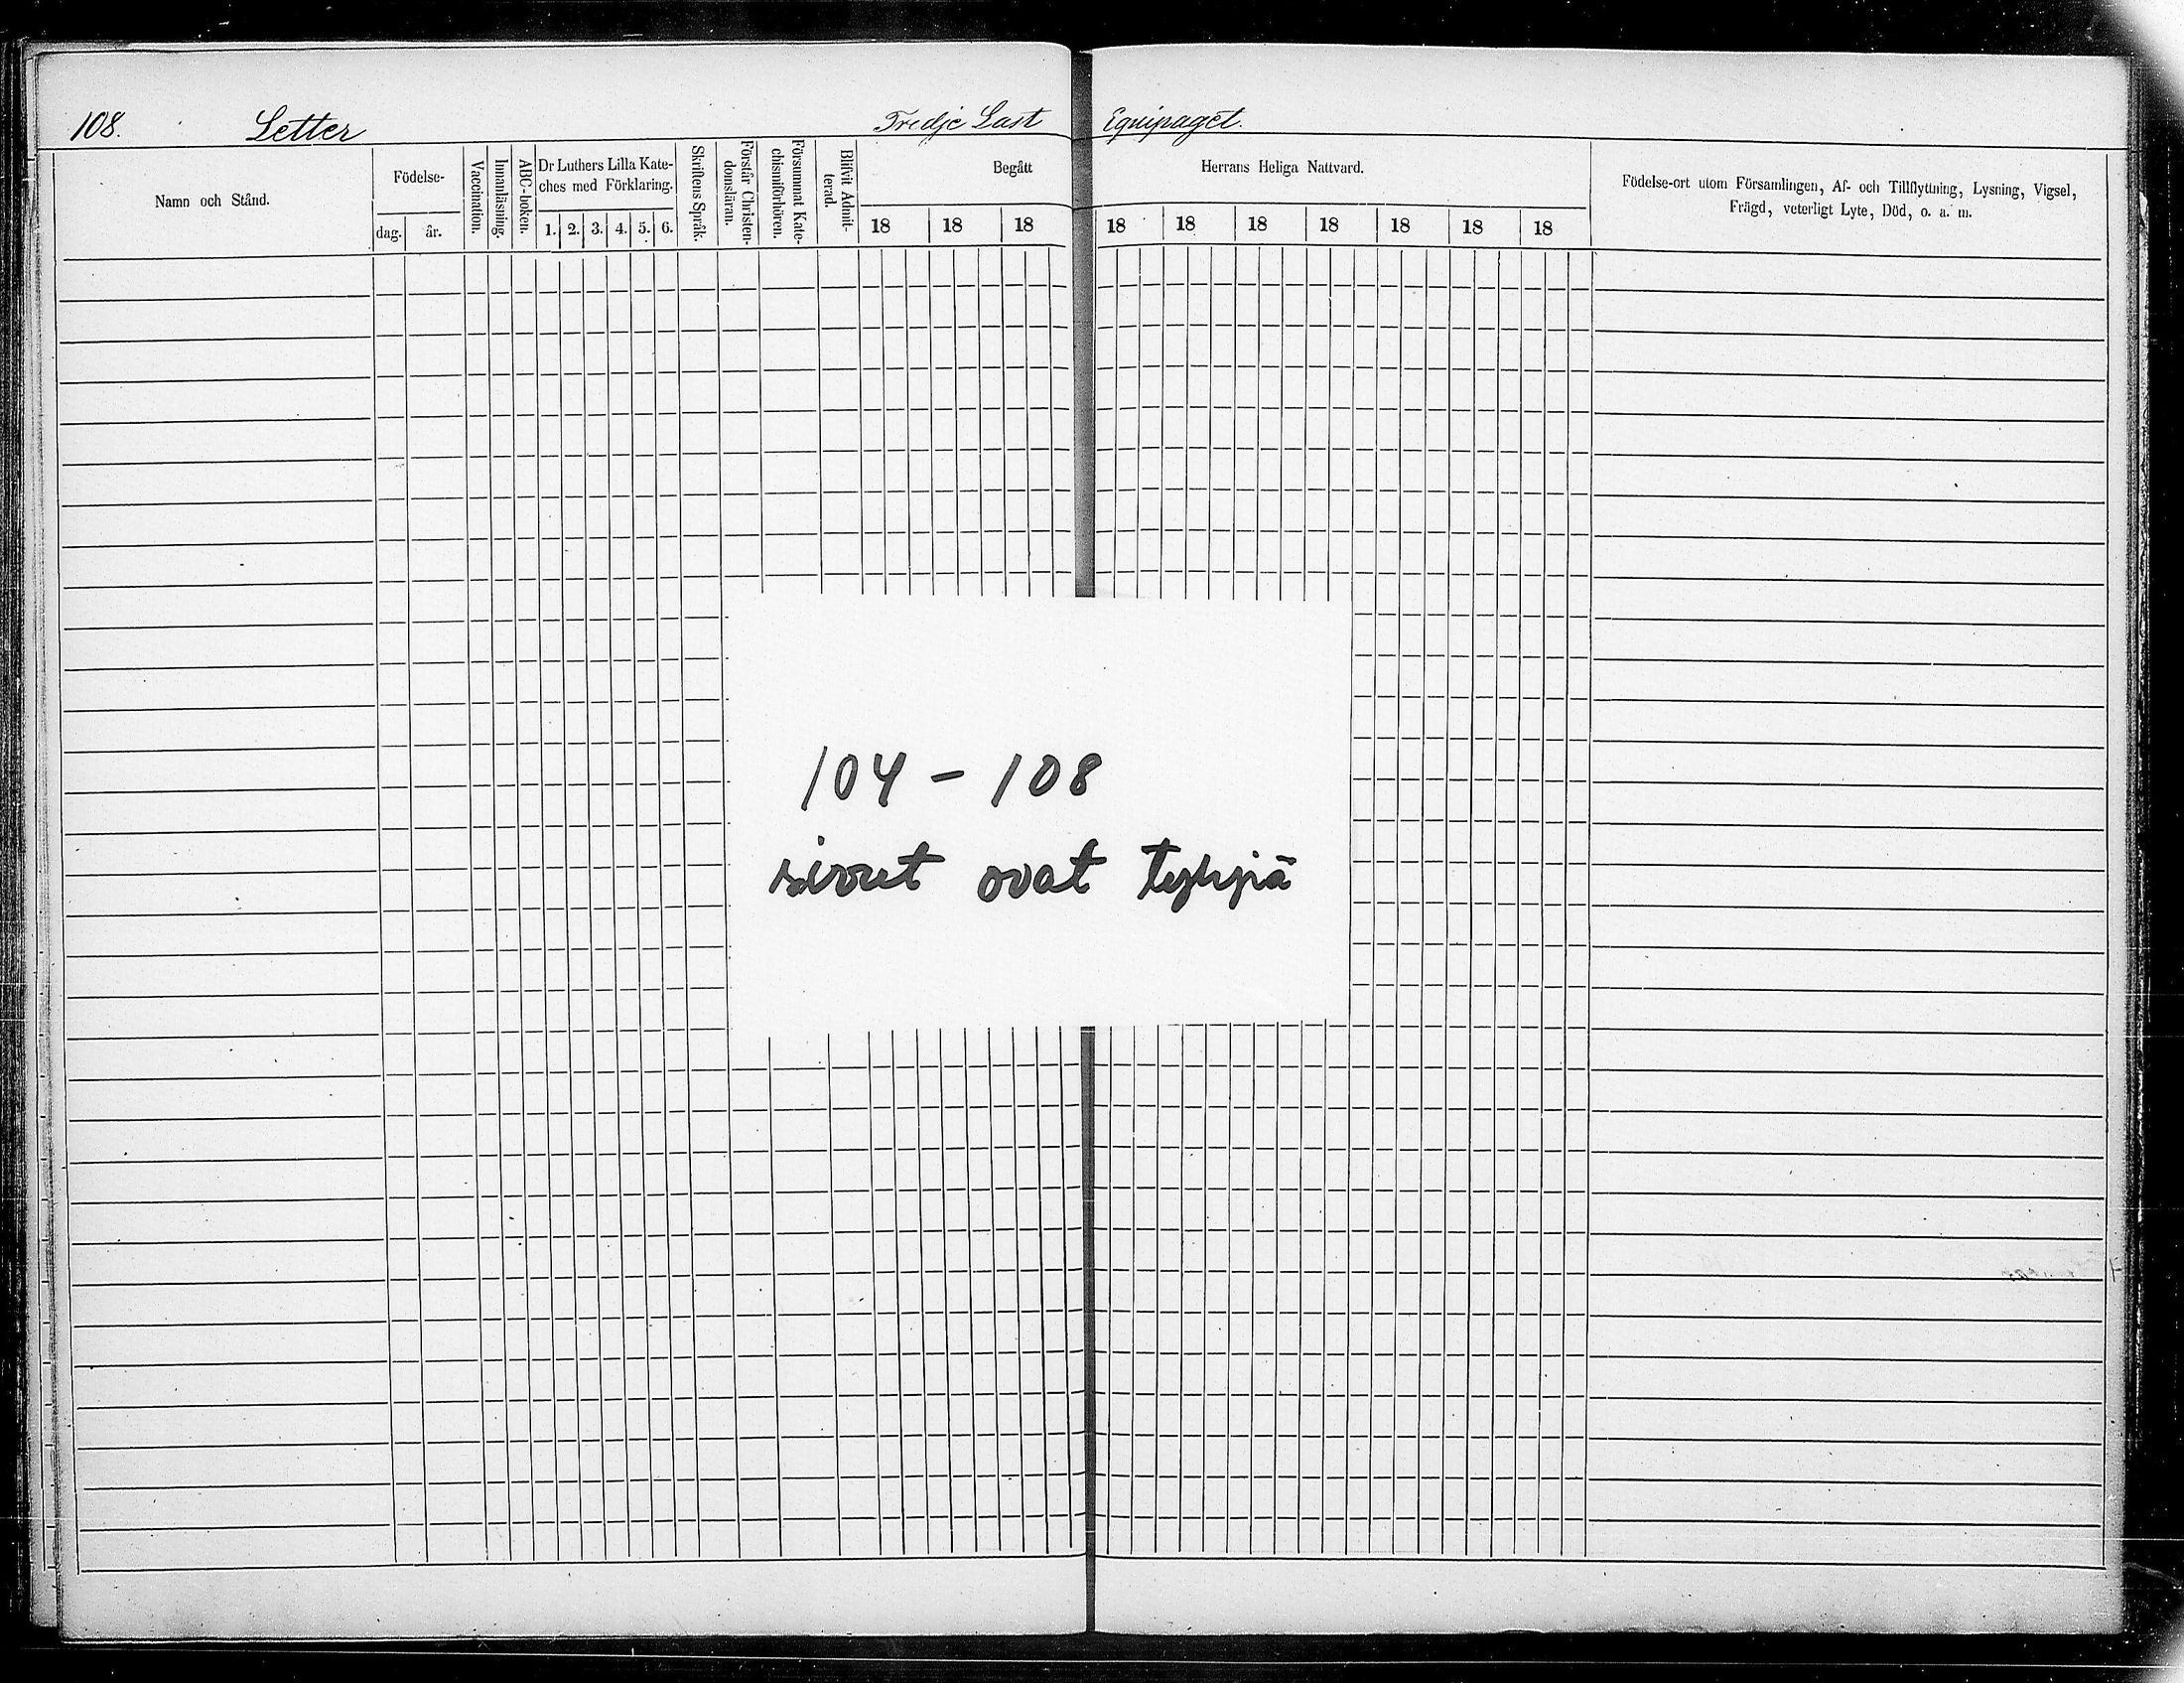 108. Letter Tredje Last Equipaget.
Namn och Stånd.
Födelse-
dag. år.
Vaccination.
Innanläsning.
ABC-boken.
Dr Luthers Lilla Kate-
ches med Förklaring.
1. 2. 3. 4. 5. 6.
Skriftens Språk.
Förstår Christen-
domsläran.
Försummat Kate-
chismiförhören.
Blifvit Admit-
terad.
Begått Herrans Heliga Nattvard.
18 18 18 18 18 18 18 18 18 18
Födelse-ort utom Församlingen, Af- och Tillflyttning, Lysning, Vigsel,
Frägd, veterligt Lyte, Död, o. a. m.
104 - 108
sivut ovat tyhjiä